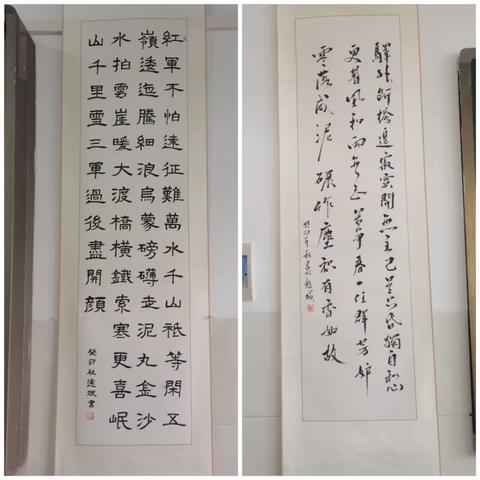 紅軍不怕遠征難萬水千山祇等閑五
嶺逶迤騰細浪烏蒙磅礴走泥丸金沙
水拍雲崖暖大渡橋橫鐵索寒更喜岷
山千里雪三軍過後盡開顔
癸卯秋逸斌書
驛外斷橋邊寂寞開無主已是黃昏獨自愁
更著風和雨無意苦爭春一任群芳妒
零落成泥碾作塵祇有香如故
癸卯年秋